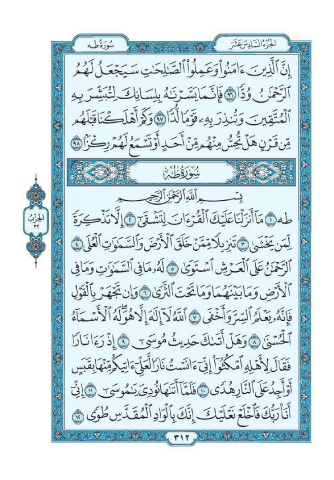 الجزء السادس عشر
سورة طه
إِنَّ الَّذِينَ ءَامَنُوا وَعَمِلُوا الصَّٰلِحَٰتِ سَيَجْعَلُ لَهُمُ
الرَّحْمَٰنُ وُدًّا ٩٦ فَإِنَّمَا يَسَّرْنَٰهُ بِلِسَانِكَ لِتُبَشِّرَ بِهِ
الْمُتَّقِينَ وَتُنذِرَ بِهِۦ قَوْمًا لُّدًّا ٩٧ وَكَمْ أَهْلَكْنَا قَبْلَهُم
مِّن قَرْنٍ هَلْ تُحِسُّ مِنْهُم مِّنْ أَحَدٍ أَوْ تَسْمَعُ لَهُمْ رِكْزًا ٩٨
سُورَةُ طه
بِسْمِ اللَّهِ الرَّحْمَٰنِ الرَّحِيمِ
طه ١ مَا أَنزَلْنَا عَلَيْكَ الْقُرْءَانَ لِتَشْقَىٰ ٢ إِلَّا تَذْكِرَةً
لِّمَن يَخْشَىٰ ٣ تَنزِيلًا مِّمَّنْ خَلَقَ الْأَرْضَ وَالسَّمَٰوَٰتِ الْعُلَى ٤
الرَّحْمَٰنُ عَلَى الْعَرْشِ اسْتَوَىٰ ٥ لَهُۥ مَا فِي السَّمَٰوَٰتِ وَمَا فِي
الْأَرْضِ وَمَا بَيْنَهُمَا وَمَا تَحْتَ الثَّرَىٰ ٦ وَإِن تَجْهَرْ بِالْقَوْلِ
فَإِنَّهُۥ يَعْلَمُ السِّرَّ وَأَخْفَى ٧ اللَّهُ لَا إِلَٰهَ إِلَّا هُوَ لَهُ الْأَسْمَاءُ
الْحُسْنَىٰ ٨ وَهَلْ أَتَىٰكَ حَدِيثُ مُوسَىٰ ٩ إِذْ رَءَا نَارًا
فَقَالَ لِأَهْلِهِ امْكُثُوا إِنِّي ءَانَسْتُ نَارًا لَّعَلِّي ءَاتِيكُم مِّنْهَا بِقَبَسٍ
أَوْ أَجِدُ عَلَى النَّارِ هُدًى ١٠ فَلَمَّا أَتَىٰهَا نُودِيَ يَٰمُوسَىٰ ١١ إِنِّي
أَنَا رَبُّكَ فَاخْلَعْ نَعْلَيْكَ إِنَّكَ بِالْوَادِ الْمُقَدَّسِ طُوًى ١٢
٣١٢
الحزب
٣٢